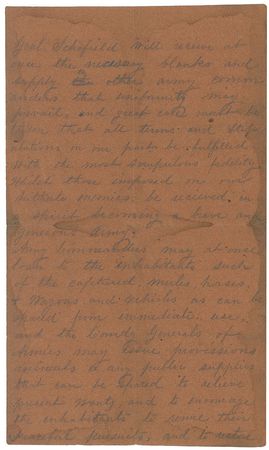 Genl. Schofield will secure at
once the necessary blanks and
supply the other army comm
anders that uniformity may
prevail, and great care must be
taken that all terms and stip
ulations on our part be fulfilled
with the most scrupulous fidelity
whilst those imposed on our
hitherto enemies be received in
a spirit becoming a brave and
generous army.
Army commanders may at once
loan to the inhabitants such
of the captured mules, horses,
& wagons and vehicles as can be
spared from immediate use,
and the Comdg Generals of
Armies may issue provisions
animals & any public supplies
that can be spared to relieve
present wants, and to encourage
the inhabitants to renew their
peaceful pursuits, and to restore